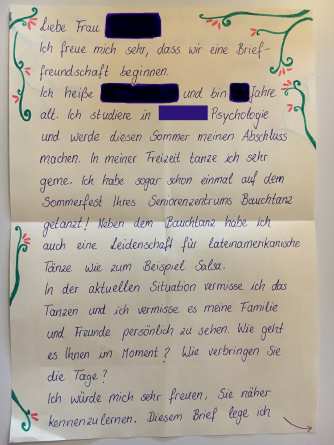 Liebe Frau
Ich freue mich sehr, dass wir eine Brief-
freundschaft beginnen.
Ich heiße und bin Jahre
alt. Ich studiere in Psychologie
und werde diesen Sommer meinen Abschluss
machen. In meiner Freizeit tanze ich sehr
gerne. Ich habe sogar schon einmal auf dem
Sommerfest Ihres Seniorenzentrums Bauchtanz
getanzt! Neben dem Bauchtanz habe ich
auch eine Leidenschaft für lateinamerikanische
Tänze wie zum Beispiel Salsa.
In der aktuellen Situation vermisse ich das
Tanzen und ich vermisse es meine Familie
und Freunde persönlich zu sehen. Wie geht
es Ihnen im Moment? Wie verbringen Sie
die Tage?
Ich würde mich sehr freuen, Sie näher
kennenzulernen. Diesem Brief lege ich